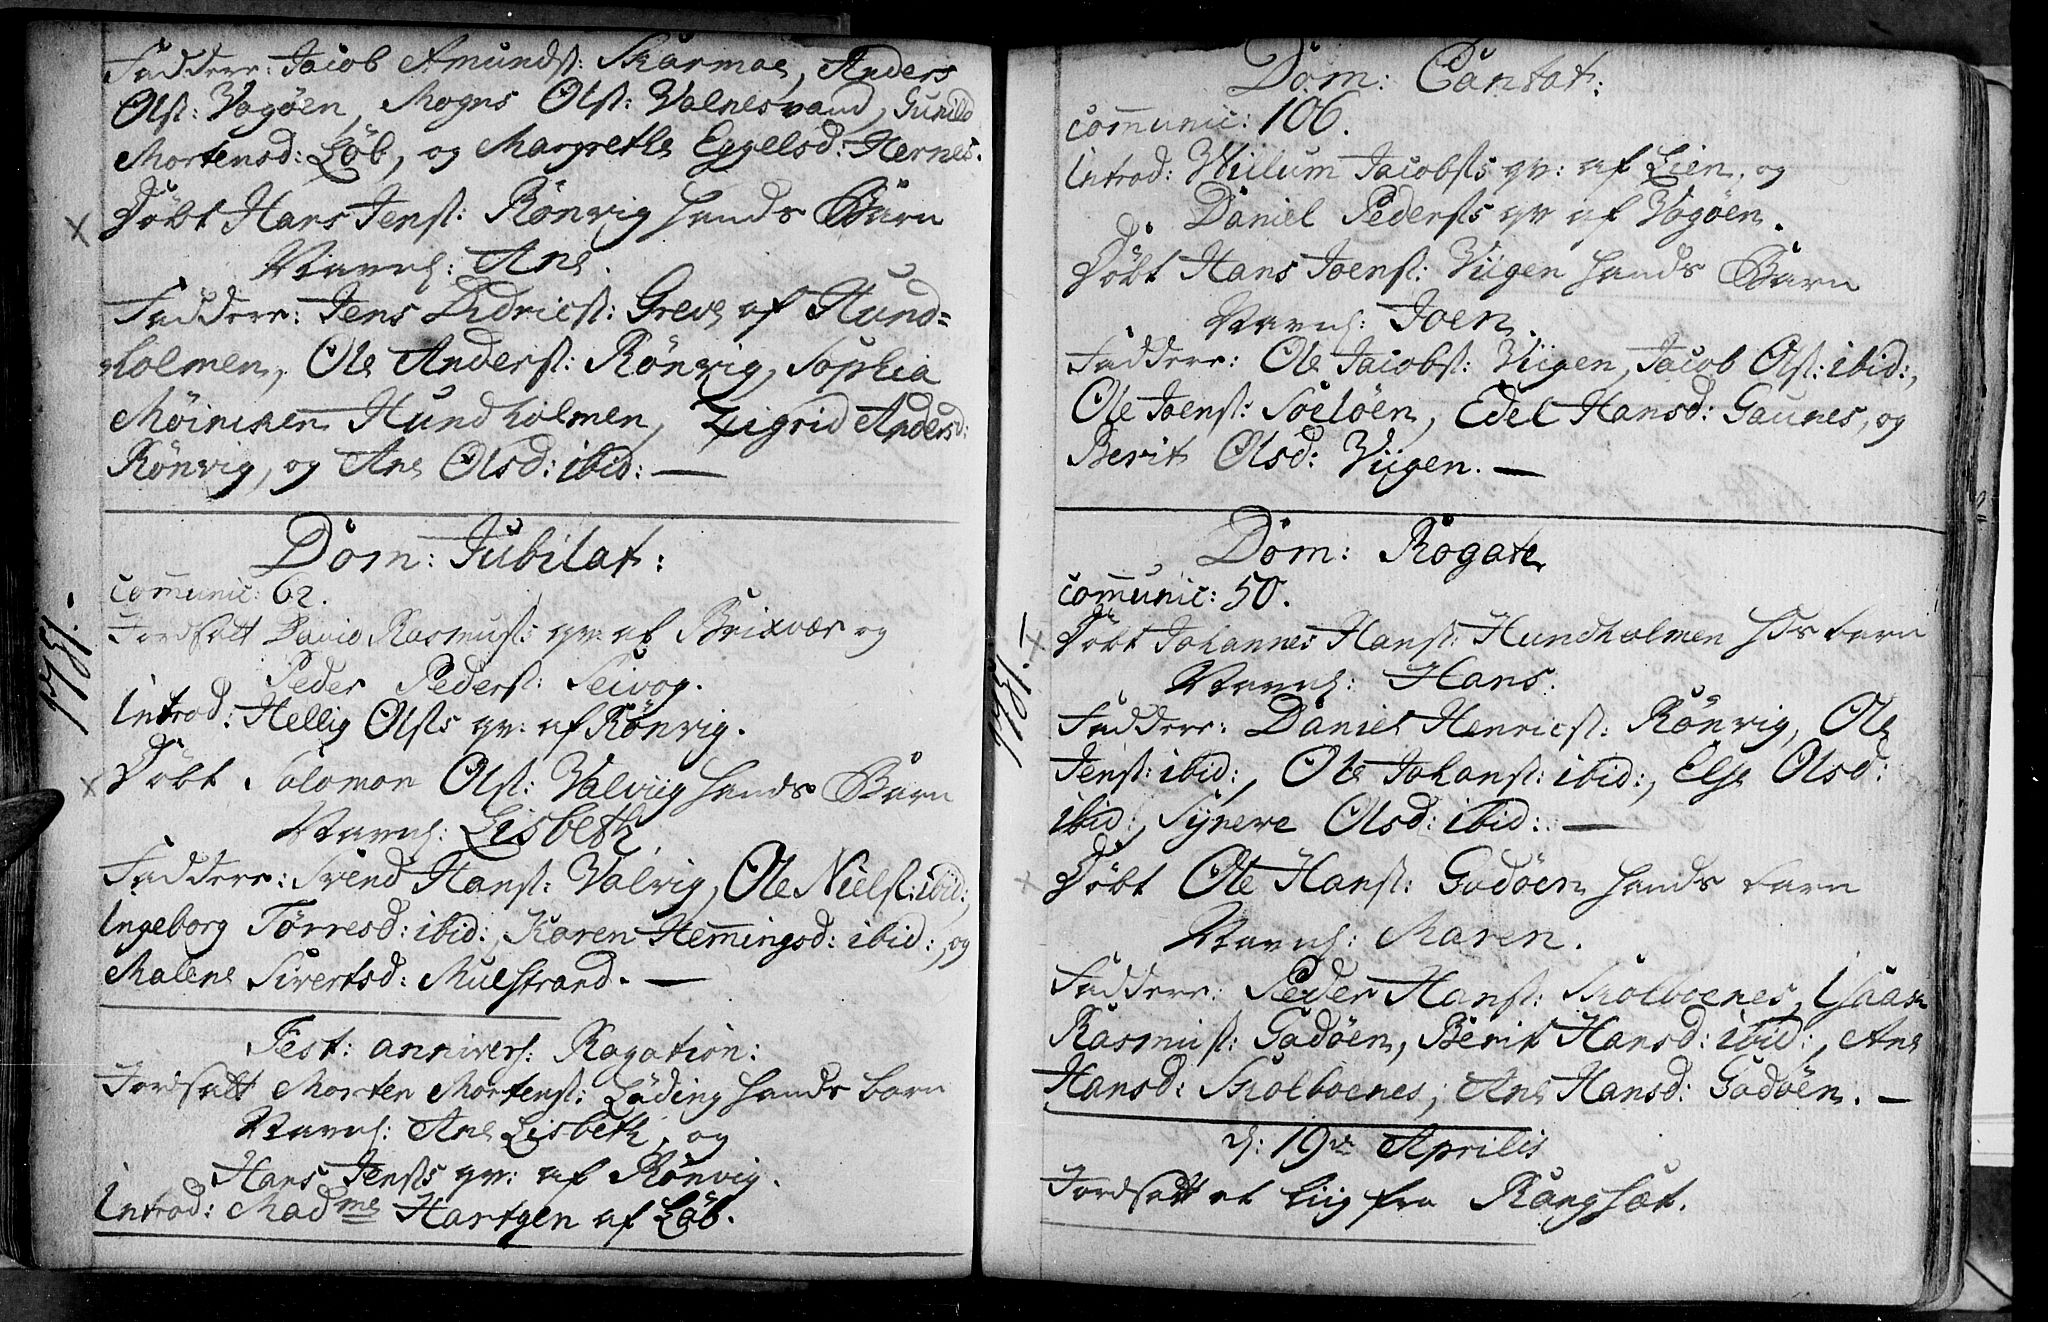 Faddere: Jacob Amundſ: Skarmoe, Anders
Olſ: Vogöen, Mogns Olſ: Valnesvand, Gunild
Mortensd: Löb, og Margrethe Eggelsd: Hernes.
Döbt Hans Jenſ: Rönvig hands Barn
Navnl: Ane.
Faddere: Jens Didricſ: Greve af Hund=
holmen, Ole Anderſ: Rönvig, Sophia
Möinichen Hundholmen, Zigrid Andersd:
Rönvig, og Ane Olsd: ibid: —
Dom: Jubilat:
communic: 62.
Jordſatt David Rasmuſ: qv: af Brixvær og
Peder Pederſ: Seivog.
Introd: Hellig Olſs qv: af Rönvig.
1781.
Döbt Solomon Olſ: Valviig hands Barn
Navnl: Lisbeth
Faddere: Svend Hanſ: Valvig, Ole Nielſ: ibid:,
Ingeborg Törresd: ibid:, Karen Hemmingsd: ibid:, og
Malene Sivertsd: Mulstrand. —
Fest: annivers: Rogation:
Jordſatt Morten Mortenſ: Löding hands barn
Navnl: Ane Lisbeth, og
Hans Jenſs qv: af Rönvig.
Introd: Madme Hartgen af Löb.
Dom: Cantat:
communic: 106.
Introd: Wiilum Jacobſs qv: af Lien, og
Daniel Pederſs qv af Vogöen.
Döbt Hans Joenſ: Viigen hands Barn
Navnl: Joen.
Faddere: Ole Jacobſ: Viigen, Jacob Olſ: ibid:,
Ole Joenſ: Soelöen, Edel Hansd: Gaunes, og
Berit Olsd: Viigen. —
Dom: Rogate
communic: 50.
1781.
Döbt Johannes Hanſ: Hundholmen hds barn
Navnl: Hans.
Faddere: Daniel Henricſ: Rönvig, Ole
Jenſ: ibid:, Ole Johanſ: ibid:, Else Olsd:
ibid:, Synere Olsd: ibid: —
Döbt Ole Hanſ: Godöen hands barn
Navnl: Maren.
Faddere: Peder Hanſ: Skolboenes, Isaac
Rasmuſ: Godöen, Berit Hansd: ibid:, Ane
Hansd: Skolboenes, Ane Hansd: Godöen. —
d: 19de Aprilis
Jordſatt et Liig fra Rangsæt.